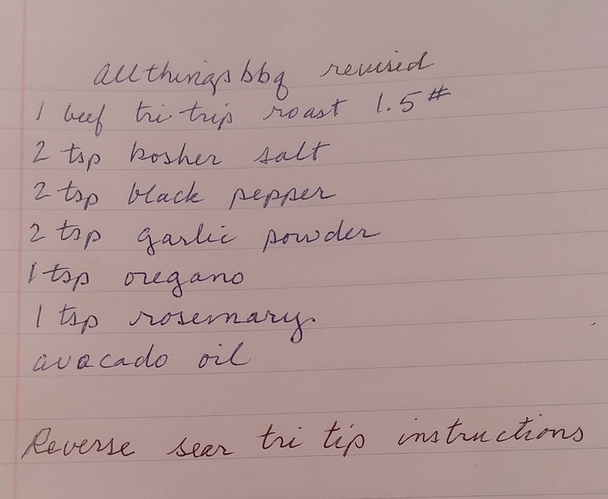 allthingsbbq revised
1 beef tri trip roast 1.5#
2 tsp kosher salt
2 tsp black pepper
2 tsp garlic powder
1 tsp oregano
1 tsp rosemary.
avocado oil
Reverse sear tri tip instructions